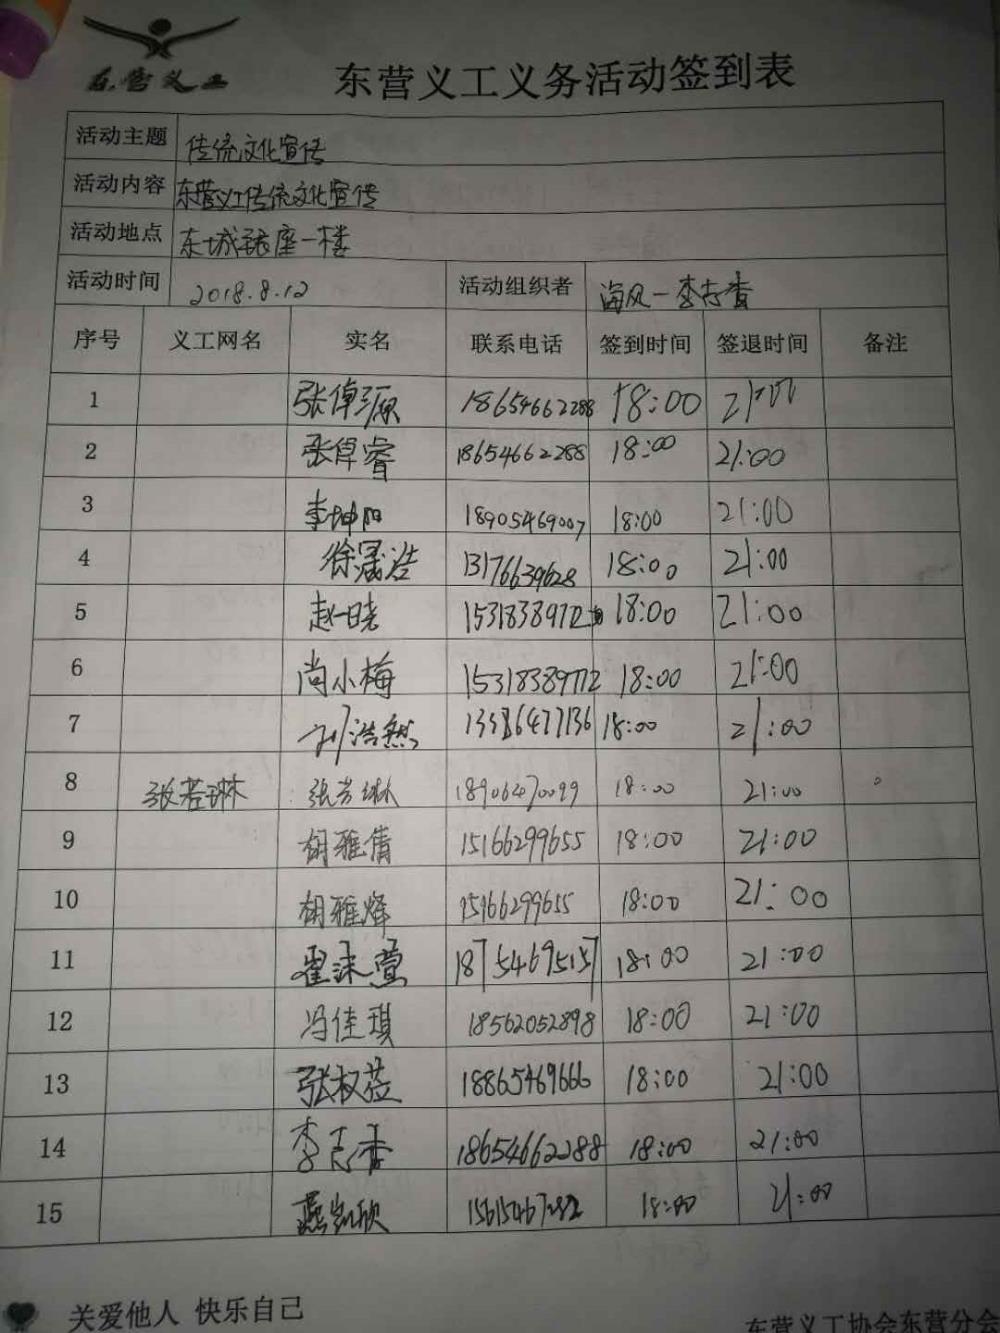 东营义工
东营义工义务活动签到表
活动主题 传统文化宣传
活动内容 东营义工传统文化宣传
活动地点 东城银座一楼
活动时间 2018.8.12 活动组织者 海风-李志香
序号 义工网名 实名 联系电话 签到时间 签退时间 备注
1 张倬源 18654662288 18:00 21:00
2 张倬睿 18654662288 18:00 21:00
3 李坤阳 18905469007 18:00 21:00
4 徐晟浩 13176639628 18:00 21:00
5 赵一晓 15318389772 18:00 21:00
6 尚小梅 15318389772 18:00 21:00
7 刘浩然 18:00 21:00
8 张若琳 张若琳 18906470099 18:00 21:00
9 胡雅倩 15166299655 18:00 21:00
10 胡雅烽 15166299655 18:00 21:00
11 崔沫萱 18754695157 18:00 21:00
12 冯佳琪 18562052898 18:00 21:00
13 张权莅 18865469666 18:00 21:00
14 李志香 18654662288 18:00 21:00
15 燕凯欣 18:00 21:00
关爱他人 快乐自己
东营义工协会东营分会